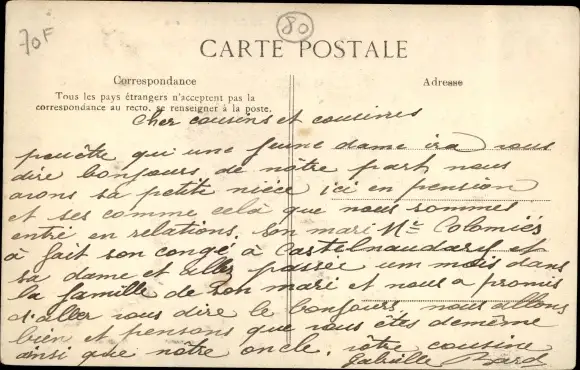 70F
80
CARTE POSTALE
Correspondance
Adresse
Tous les pays étrangers n'acceptent pas la
correspondance au recto, se renseigner à la poste.
Cher cousins et cousines
peuêtre qu'une jeune dame ira vous
dire bonjours de nôtre part nous
avons sa petite nièce ici en pension
et ses comme celà que nous sommes
entré en relations. Son mari Mr Colomiès
à fait son congé à Castelnaudary et
sa dame et allez passée um mois dans
la famille de son mari et nous a promis
d'aller vous dire le bonjours. nous allons
bien et pensons que vous êtes demême
ainsi que nôtre oncle. vôtre cousine
Gabrielle Bard